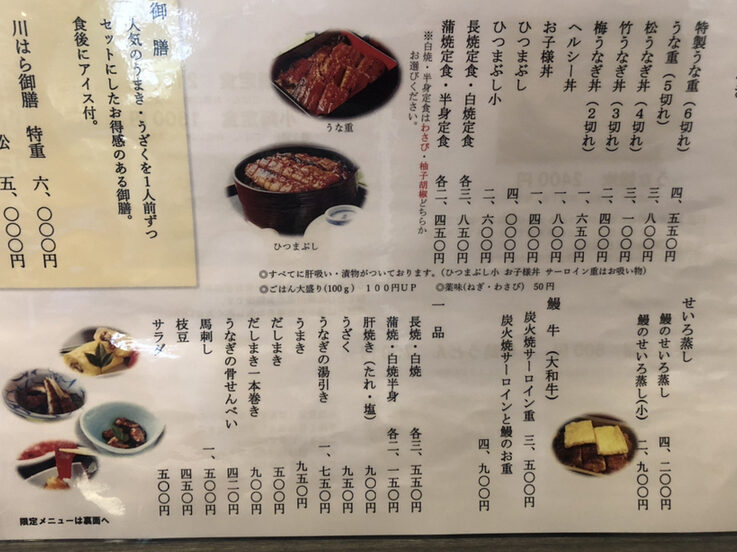 特製うな重(6切れ) 四、五五〇円
うな重(5切れ) 三、八〇〇円
松うなぎ丼(4切れ) 三、一〇〇円
竹うなぎ丼(3切れ) 二、四〇〇円
梅うなぎ丼(2切れ) 一、六五〇円
ヘルシー丼 一、八〇〇円
お子様丼 一、四〇〇円
ひつまぶし 四、〇〇〇円
ひつまぶし小 二、六〇〇円
長焼定食・白焼定食 各三、八五〇円
蒲焼定食・半身定食 各二、四五〇円
※白焼・半身定食はわさび・柚子胡椒どちらか
お選びください。
うな重
ひつまぶし
御膳
人気のうまき・うざくを1人前ずつ
セットにしたお得感のある御膳。
食後にアイス付。
川はら御膳 特重 六、〇〇〇円
松 五、〇〇〇円
◎すべてに肝吸い・漬物がついております。(ひつまぶし小 お子様丼 サーロイン重はお吸い物)
◎ごはん大盛り(100g) 100円UP ◎薬味(ねぎ・わさび) 50円
せいろ蒸し
鰻のせいろ蒸し 四、二〇〇円
鰻のせいろ蒸し(小) 二、九〇〇円
鰻 牛 (大和牛)
炭火焼サーロイン重 三、五〇〇円
炭火焼サーロインと鰻のお重 四、九〇〇円
一品
長焼・白焼 各三、五五〇円
蒲焼・白焼半身 各二、一五〇円
肝焼き(たれ・塩) 九〇〇円
うざく 九五〇円
うなぎの湯引き 一、七五〇円
うまき 九五〇円
だしまき 五〇〇円
だしまき一本巻き 九〇〇円
うなぎの骨せんべい 四二〇円
馬刺し 一、五〇〇円
枝豆 四五〇円
サラダ 五〇〇円
限定メニューは裏面へ